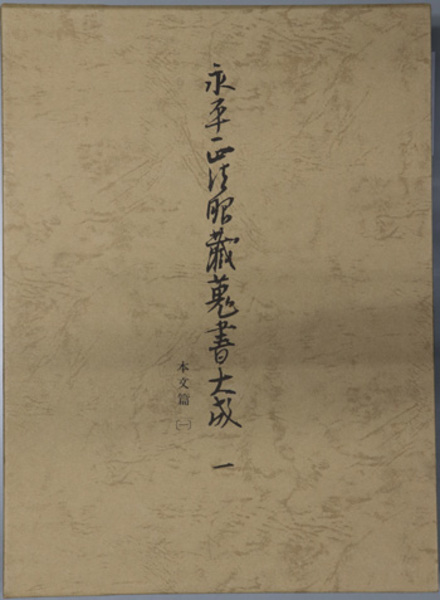 永平正法眼蔵蒐書大成 一
本文篇 〔一〕